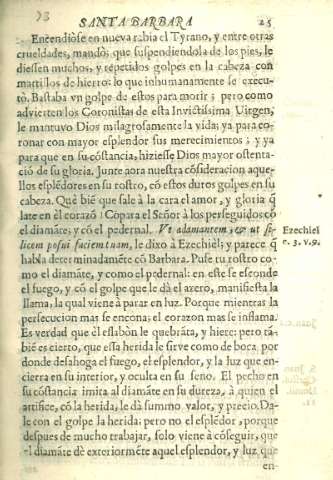 SANTA BARBARA 25
Encendiòse en nueva rabia el Tyrano, y entre otras
crueldades, mandò; que suspendiendola de los pies, le
diessen muchos, y repetidos golpes en la cabeza con
martillos de hierro: lo que inhumanamente se execu-
tò. Bastaba vn golpe de estos para morir; pero como
advierten los Coronistas de esta Invictissima Virgen,
le mantuvo Dios milagrosamente la vida; ya para co-
ronar con mayor esplendor sus merecimientos; y ya
para que en su cōstancia, hiziesse Dios mayor ostenta-
ciò de su gloria. Junte aora nuestra cōsideracion aque-
llos esplēdores en su rostro, cō estos duros golpes en su
cabeza. Què biē que sale à la cara el amor, y gloria q̄
late en el corazō! Cōpara el Señor à los perseguidos cō
el diamāte; y cō el pedernal. Vt adamantem, & ut si-
licem posui faciem tuam, le dixo à Ezechièl; y parece q̄
Ezechiel
c. 3. v. 9.
habla determinadamēte cō Barbara. Puse tu rostro co-
mo el diamāte, y como el pedernal: en este se esconde
el fuego, y cō el golpe que le dà el azero, manifiesta la
llama, la qual viene à parar en luz. Porque mientras la
persecucion mas se encona; el corazon mas se inflama.
Es verdad que èl eslabòn le quebrāta, y hiere: pero tā-
bič es cierto, que essa herida le sirve como de boca, por
donde desahoga el fuego, el esplendor, y la luz que en-
cierra en su interior, y oculta en su seno. El pecho en
su cōstancia imita al diamāte en su dureza, à quien el
artifice, cō la herida, le dà summo valor, y precio. Da-
le con el golpe la herida; pero no el esplēdor, porque
despues de mucho trabajar, solo viene à cōseguir, que
el diamāte dè exteriormēte aquel esplendor, y luz que
en-